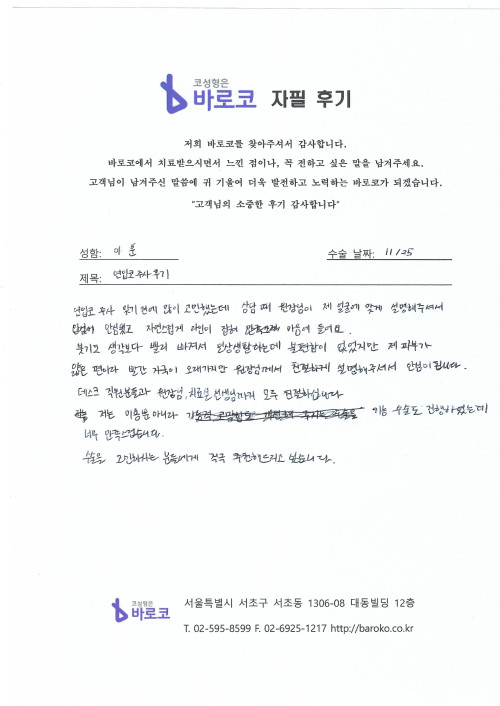 코성형은
바로코 자필 후기
저희 바로코를 찾아주셔서 감사합니다.
바로코에서 치료받으시면서 느낀 점이나, 꼭 전하고 싶은 말을 남겨주세요.
고객님이 남겨주신 말씀에 귀 기울여 더욱 발전하고 노력하는 바로코가 되겠습니다.
"고객님의 소중한 후기 감사합니다"
성함: 이 분
수술 날짜: 11/25
제목: 연입코 주사 후기
주사 맞기 전에 많이 고민했는데 상담 때 원장님이 제 얼굴에 맞게 설명해주셔서
안심했고 자연스럽게 라인이 잡혀 마음에 들어요.
붓기도 생각보다 빨리 빠져서 일상생활하는데 불편함이 없었지만 제 피부가
얇은 편이라 빨간 자국이 오래가지만 원장님께서 친절하게 설명해주셔서 안심이 됩니다.
데스크 직원분들과 원장님, 치료실 선생님까지 모두 친절하십니다
저는 미용뿐아니라 기능 수술도 진행하였는데
너무 만족스럽습니다.
수술을 고민하시는 분들에게 적극 추천해드리고 싶습니다.
코성형은
바로코
서울특별시 서초구 서초동 1306-08 대동빌딩 12층
T. 02-595-8599 F. 02-6925-1217 http://baroko.co.kr